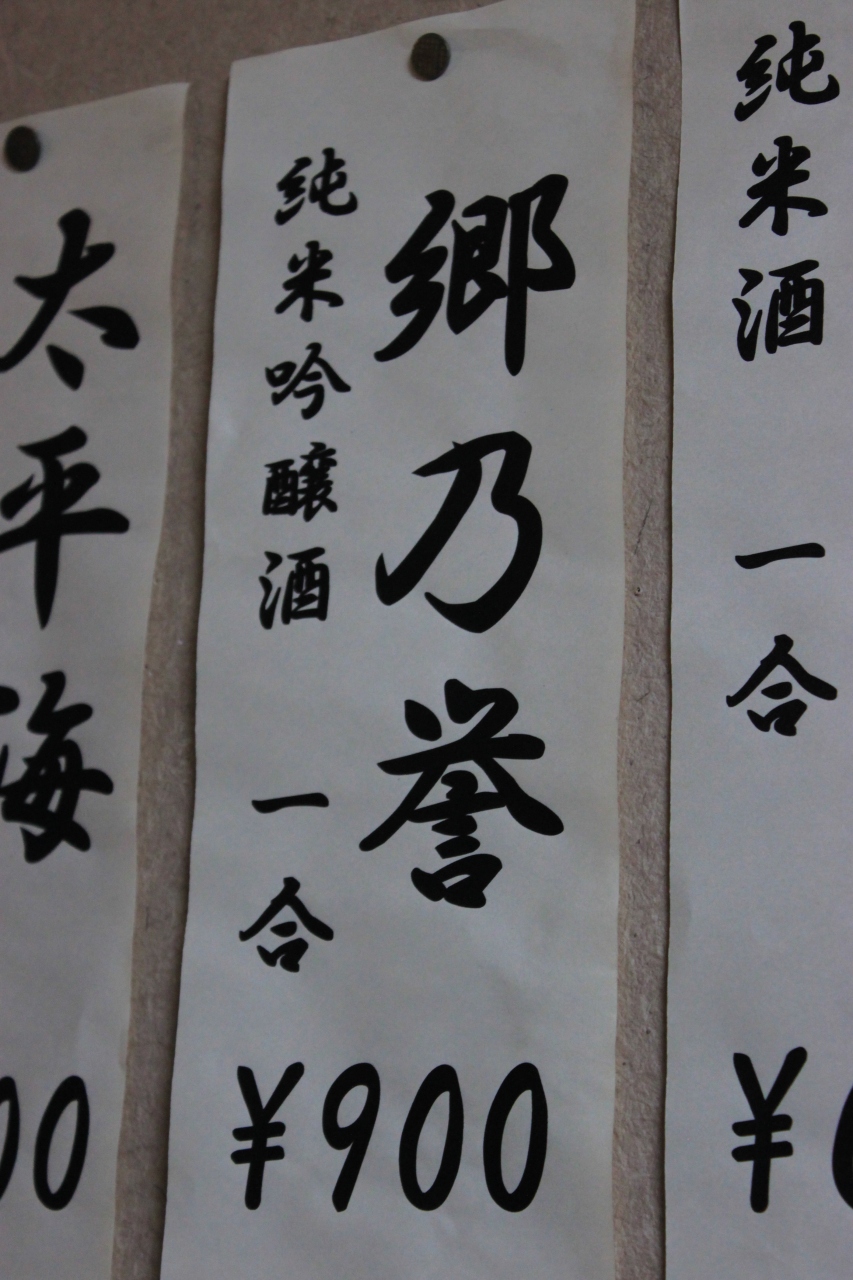 純米酒 一合
¥
郷乃誉
純米吟醸酒 一合
¥900
太平海
00